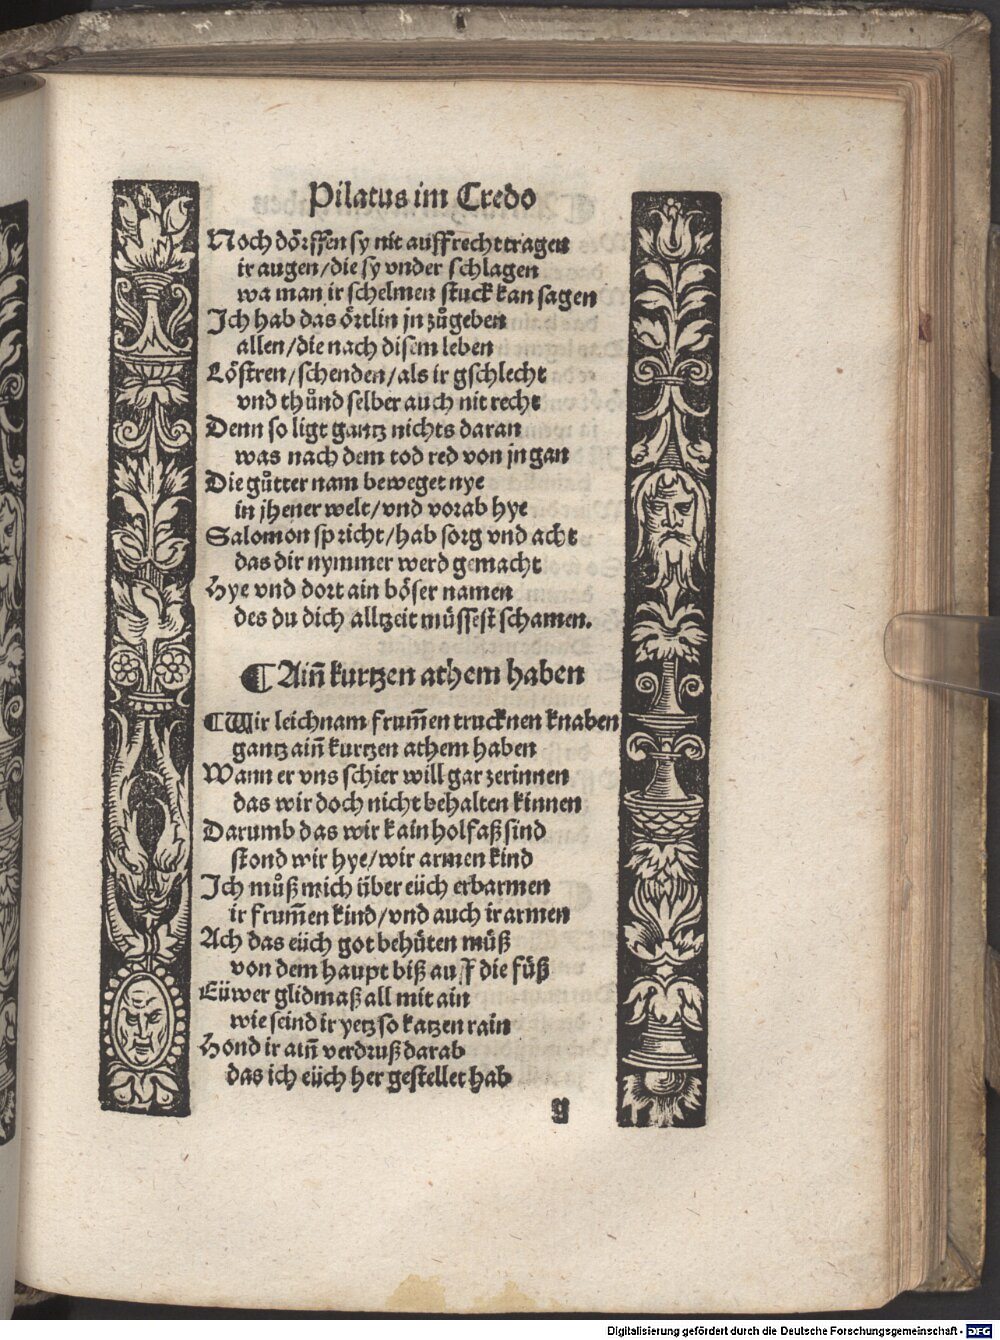 Pilatus im Credo
Noch dörffen sy nit auffrecht tragen
ir augen/die sy vnder schlagen
wa man ir schelmen stuck kan sagen
Jch hab das örtlin jn zůgeben
allen/die nach disem leben
Löstren/schenden/als ir gschlecht
vnd thůnd selber auch nit recht
Denn so ligt gantz nichts daran
was nach dem tod red von jn gan
Die gůtter nam beweget nye
in jhener welt/vnd vorab hye
Salomon spricht/hab sorg vnd acht
das dir nymmer werd gemacht
Hye vnd dort ain böser namen
des du dich alltzeit müssest schamen.
¶ Ain̄ kurtzen athem haben
¶Wir leichnam frum̄en trucknen knaben
gantz ain̄ kurtzen athem haben
Wann er vns schier will gar zerinnen
das wir doch nicht behalten kinnen
Darumb das wir kain holfaß sind
stond wir hye/wir armen kind
Jch můß mich über eüch erbarmen
ir frum̄en kind/vnd auch ir armen
Ach das eüch got behüten můß
von dem haupt biß auff die füß
Eüwer glidmaß all mit ain
wie seind ir yetz so katzen rain
Hond ir ain̄ verdruß darab
das ich eüch her gestellet hab
g
Digitalisierung gefördert durch die Deutsche Forschungsgemeinschaft - DFG